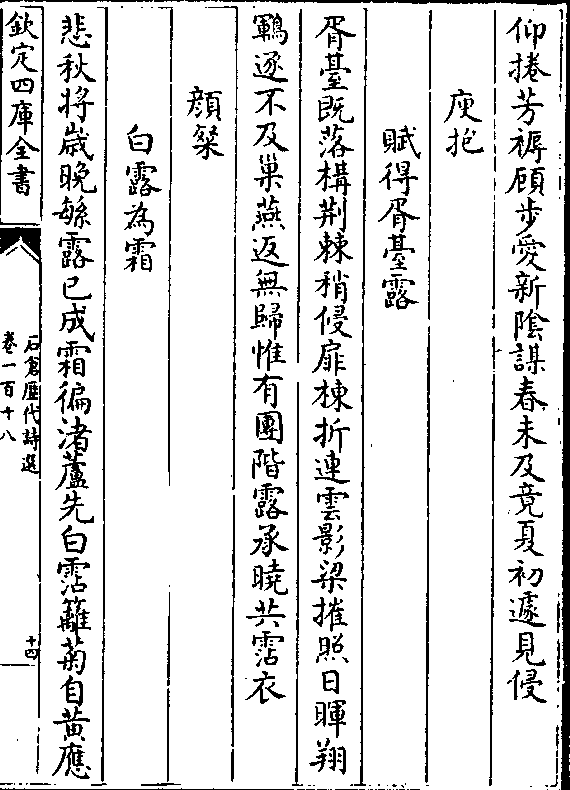 仰捲芳褥顧步愛新陰謀春未及竟夏初遽見侵
庾抱
賦得胥臺露
胥臺既落構荆棘稍侵扉棟折連雲影梁摧照日暉翔
鶤逐不及巢燕返無歸惟有團階露承曉共霑衣
顔粲
白露為霜
悲秋將歲晚繁露已成霜徧渚蘆先白霑籬菊自黃應
欽定四庫全書
石倉歷代詩選
卷一百十八
十四